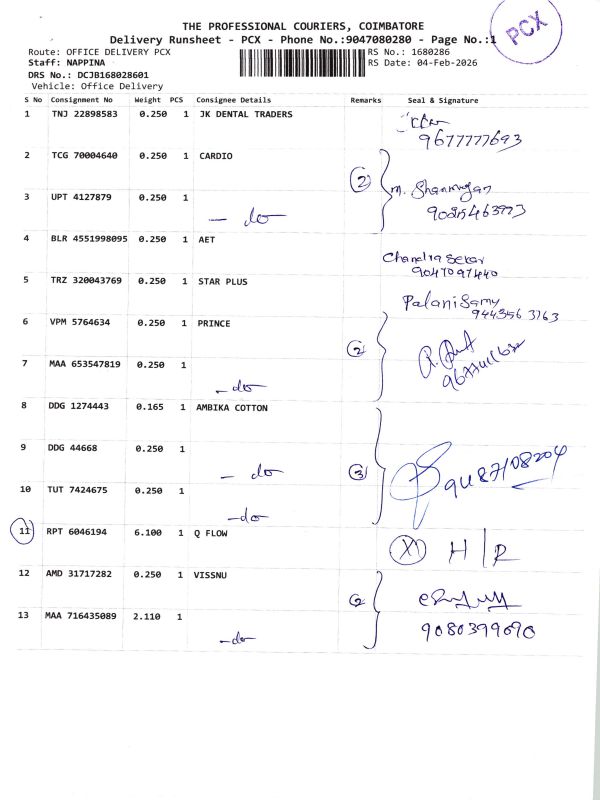 THE PROFESSIONAL COURIERS, COIMBATORE
Delivery Runsheet - PCX - Phone No.:9047080280 - Page No.:1
PCX
Route: OFFICE DELIVERY PCX
RS No.: 1680286
Staff: NAPPINA
RS Date: 04-Feb-2026
DRS No.: DCJB168028601
Vehicle: Office Delivery
S No Consignment No Weight PCS Consignee Details Remarks Seal & Signature
1 TNJ 22898583 0.250 1 JK DENTAL TRADERS
9677777693
2 TCG 70004640 0.250 1 CARDIO
(2) M. Shanmugan
3 UPT 4127879 0.250 1 - do
4 BLR 4551998095 0.250 1 AET
Chandra Sekar
9047097440
5 TRZ 320043769 0.250 1 STAR PLUS
PalaniSamy
944356 3163
6 VPM 5764634 0.250 1 PRINCE
(2)
7 MAA 653547819 0.250 1 - do
8 DDG 1274443 0.165 1 AMBIKA COTTON
9 DDG 44668 0.250 1 - do (3)
10 TUT 7424675 0.250 1 - do
11 RPT 6046194 6.100 1 Q FLOW (X) H/R
12 AMD 31717282 0.250 1 VISSNU (2)
13 MAA 716435089 2.110 1 - do
9080399090